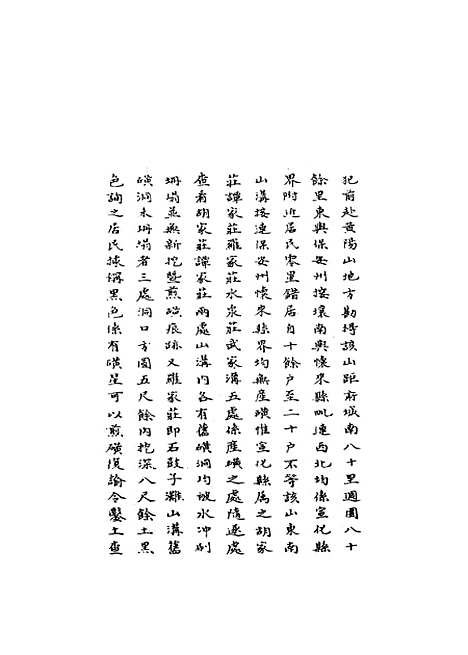 犯前赴黃陽山地方勘得該山距府城南八十里週圍八十
餘里東與保安州接壤南與懷來縣毗連西北均係宣化縣
界附近居民零星錯居自十餘戶至二十戶不等該山東南
山溝接連保安州懷來縣界均無產磺惟宣化縣屬之胡家
莊譚家莊雍家莊水泉莊武家溝五處係產磺之處隨逐處
查看胡家莊譚家莊兩處山溝內各有舊磺洞均被水冲刷
坍塌並無新挖暨煎磺痕跡又雍家莊即石鼓子灘山溝舊
磺洞未坍塌者三處洞口方圓五尺餘內挖深八尺餘土黑
色詢之居民據稱黑色係有磺星可以煎磺復諭令鑿土查